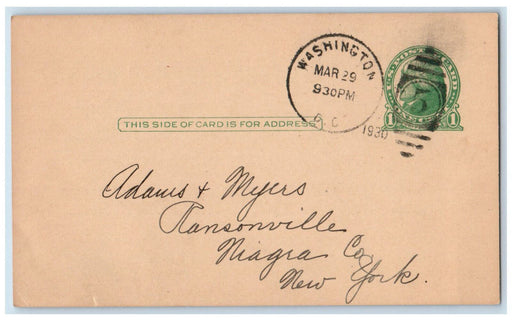 WASHINGTON
MAR 29
930PM
D. C.
1930
1 1
THIS SIDE OF CARD IS FOR ADDRESS
Adams & Myers
Ransonville
Niagra Co.
New York.